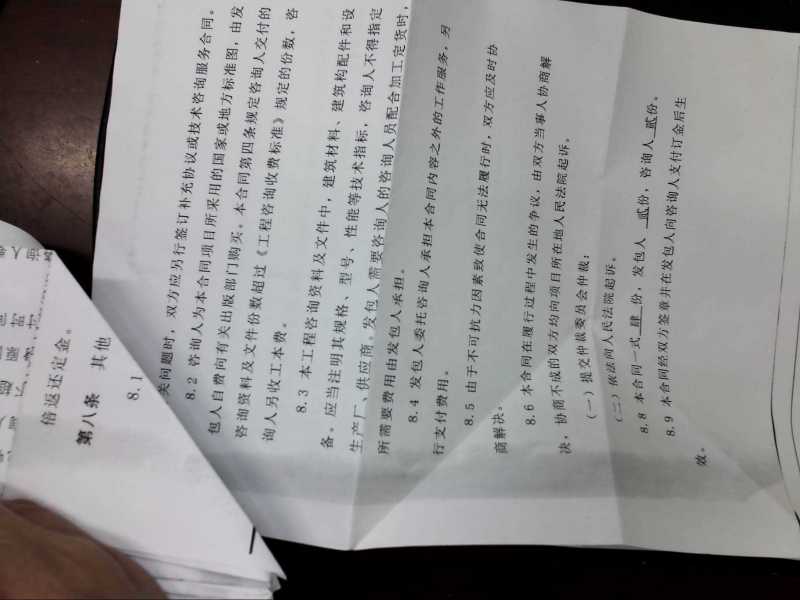 倍返还定金。
第八条 其他
8.1
关问题时，双方应另行签订补充协议或技术咨询服务合同。
8.2 咨询人为本合同项目所采用的国家或地方标准图，由发
包人自费向有关出版部门购买。本合同第四条规定咨询人交付的
咨询资料及文件份数超过《工程咨询收费标准》规定的份数，咨
询人另收工本费。
8.3 本工程咨询资料及文件中，建筑材料、建筑构配件和设
备。应当注明其规格、型号、性能等技术指标，咨询人不得指定
生产厂、供应商。发包人需要咨询人的咨询人员配合加工定货时，
所需要费用由发包人承担。
8.4 发包人委托咨询人承担本合同内容之外的工作服务，另
行支付费用。
8.5 由于不可抗力因素致使合同无法履行时，双方应及时协
商解决。
8.6 本合同在履行过程中发生的争议，由双方当事人协商解
决，协商不成的双方均向项目所在地人民法院起诉。
（一）提交仲裁委员会仲裁；
（二）依法向人民法院起诉。
8.8 本合同一式 肆 份，发包人 贰份，咨询人 贰份。
8.9 本合同经双方签章并在发包人向咨询人支付订金后生
效。